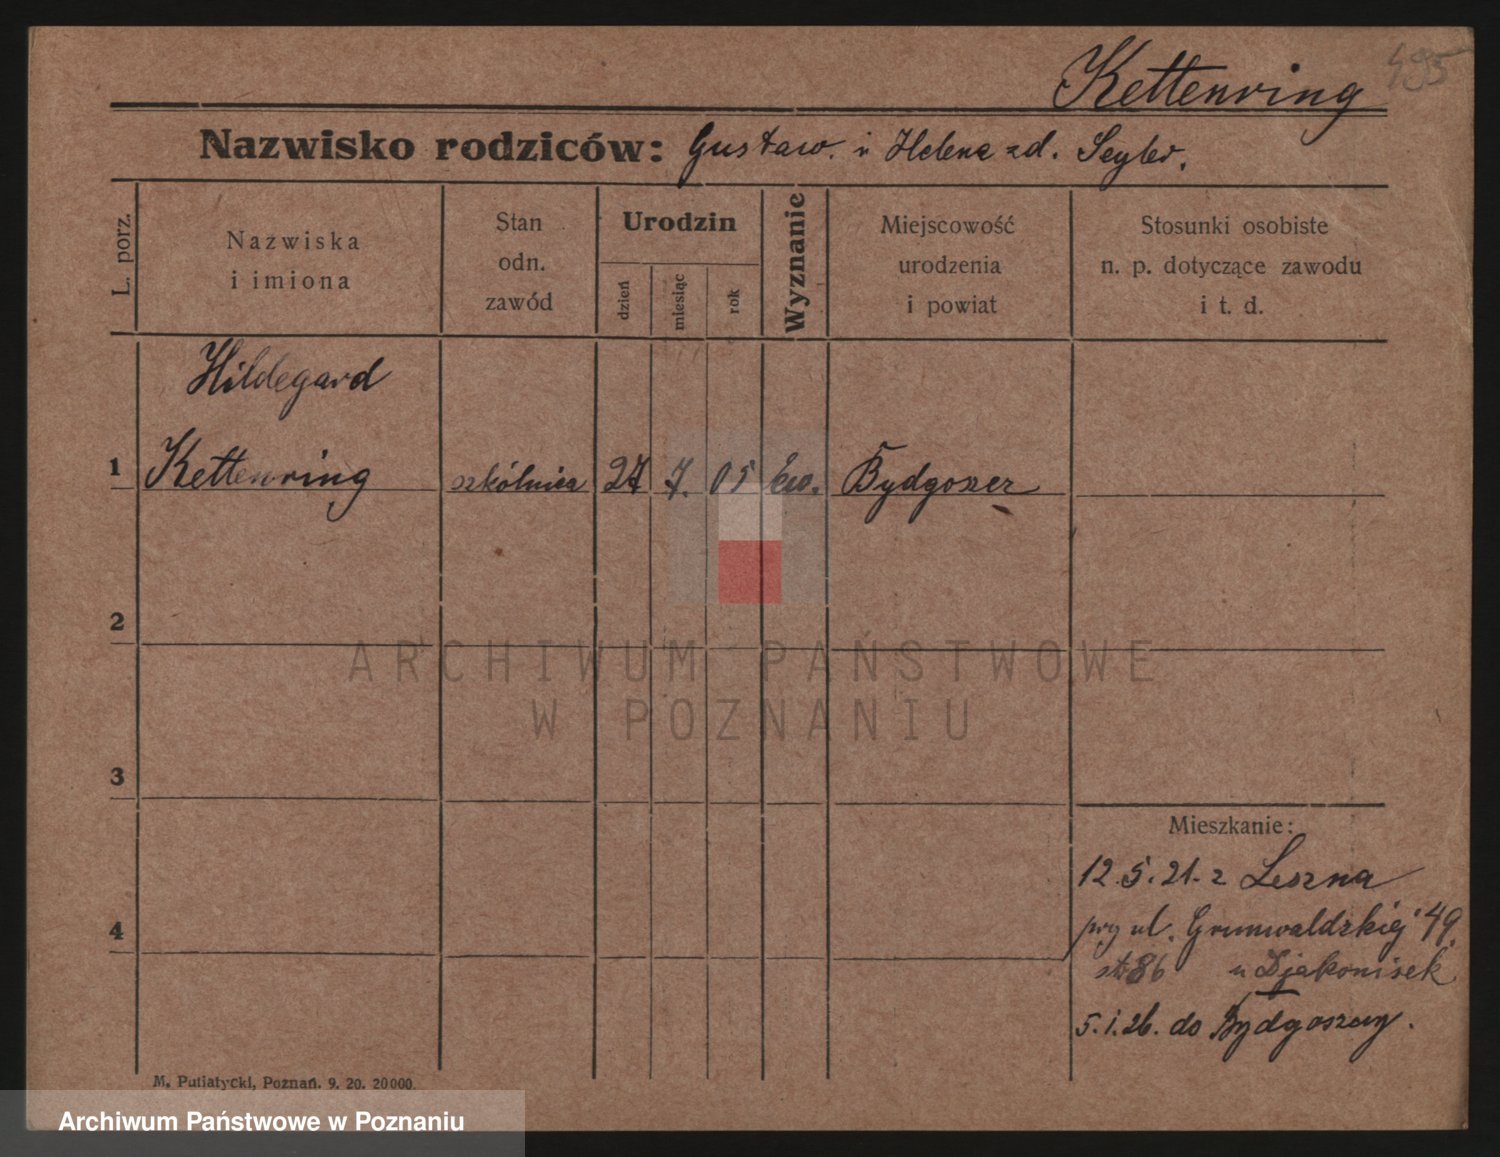 Kettenring 495
Nazwisko rodziców: Gustaw. i Helena zd. Seyler.
L. porz.
Nazwiska
i imiona
Stan
odn.
zawód
Urodzin
dzień
miesiąc
rok
Wyznanie
Miejscowość
urodzenia
i powiat
Stosunki osobiste
n. p. dotyczące zawodu
i t. d.
Hildegard
1 Kettenring szkólnica 27 7. 05 ew. Bydgoszcz
2
ARCHIWUM PAŃSTWOWE
W POZNANIU
3
Mieszkanie:
12.5.21. z Leszna
4 przy ul. Grunwaldzkiej 49.
st 86 u Djakonisek
5.1.26. do Bydgoszczy.
M. Putiatycki, Poznań. 9. 20. 20000.
Archiwum Państwowe w Poznaniu